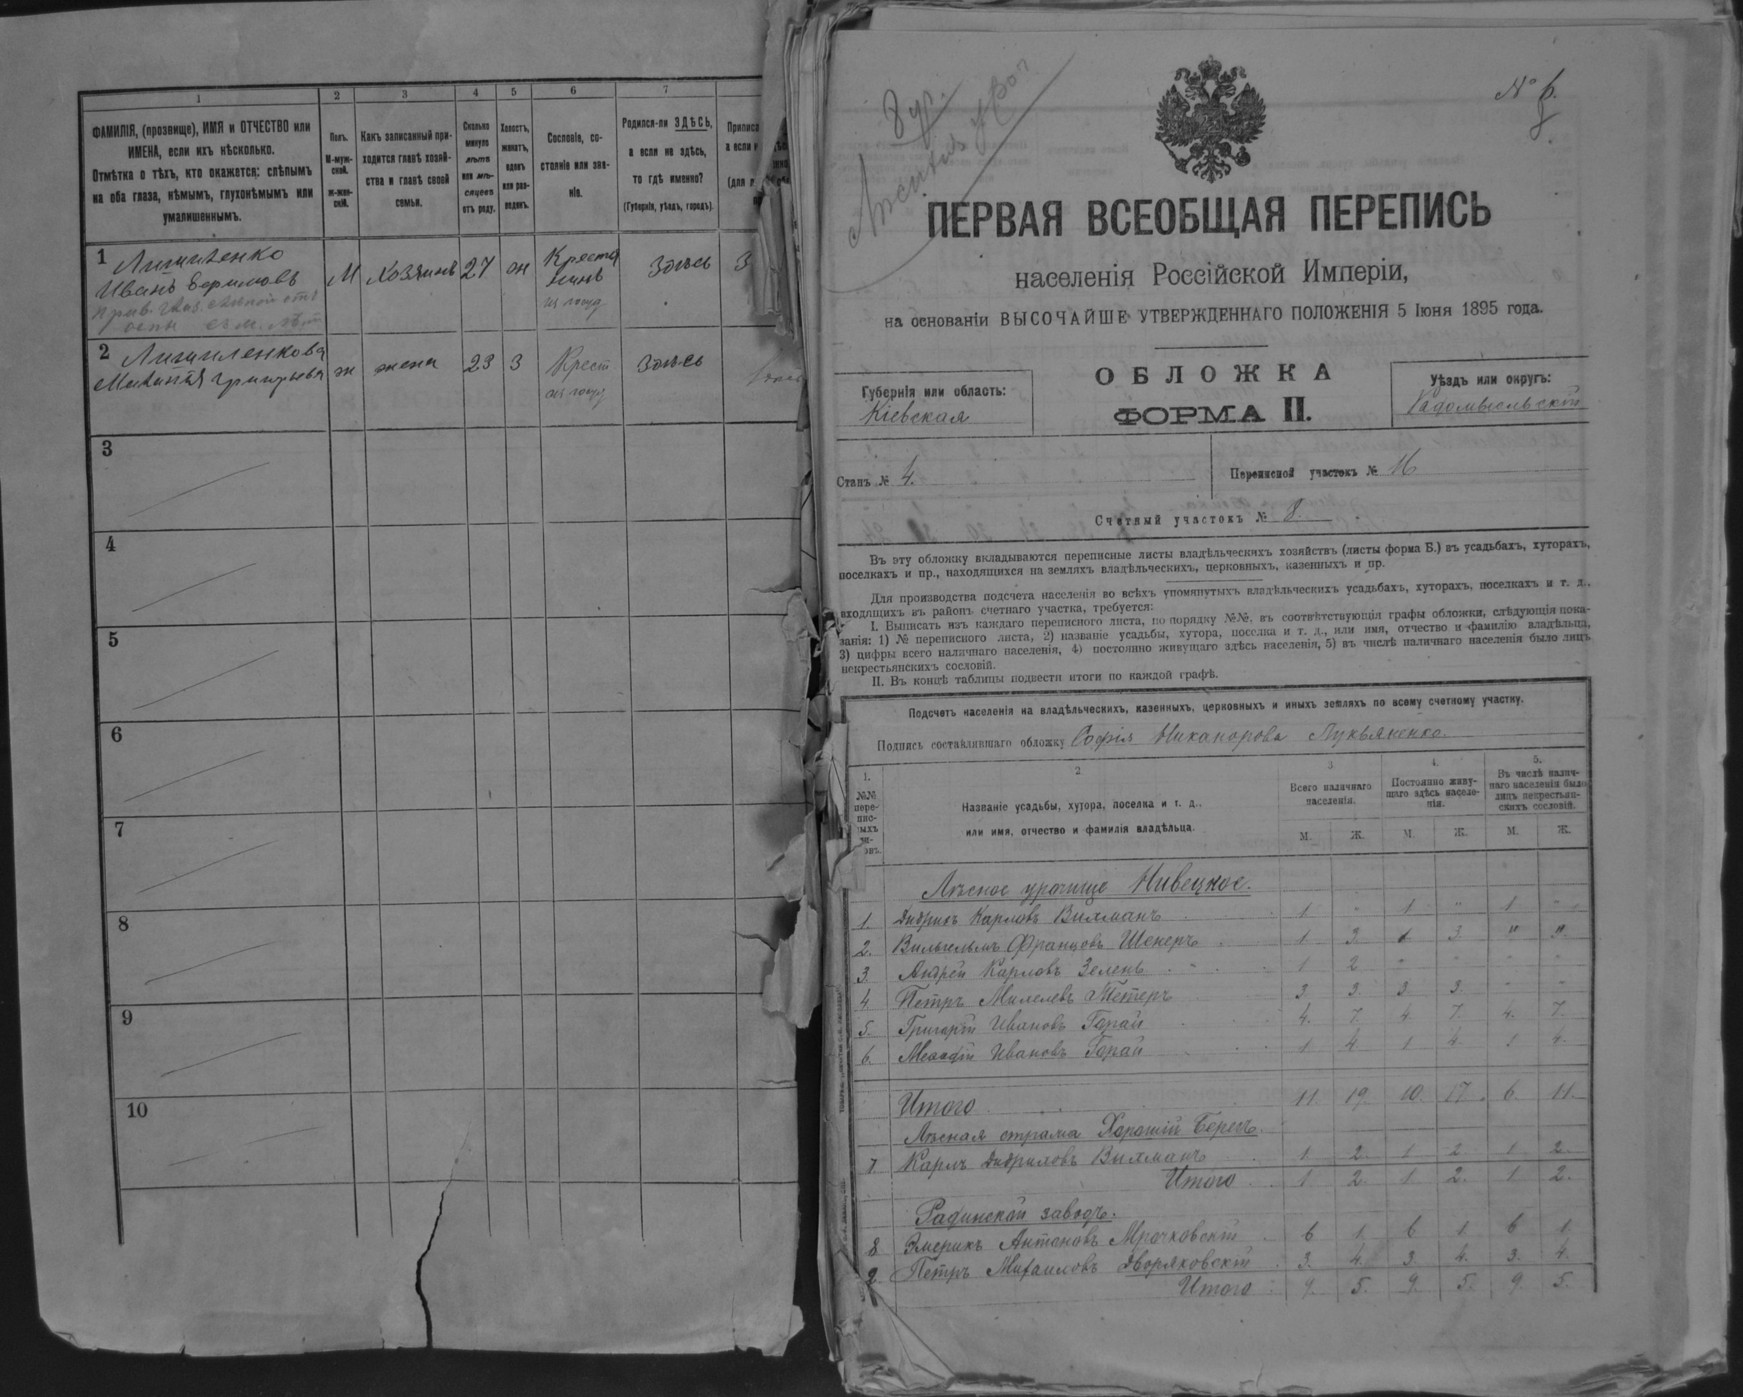 1
2
3
4
5
6
7
ФАМИЛІЯ, (прозвище), ИМЯ и ОТЧЕСТВО или
ИМЕНА, если ихъ нѣсколько.
Отмѣтка о тѣхъ, кто окажется: слѣпымъ
на оба глаза, нѣмымъ, глухонѣмымъ или
умалишеннымъ.
Полъ.
М-муж-
ской.
ж-жен-
скій.
Какъ записанный при-
ходится главѣ хозяй-
ства и главѣ своей
семьи.
Сколько
минуло
лѣтъ
или мѣ-
сяцевъ
отъ роду.
Холостъ,
женатъ,
вдовъ
или раз-
веденъ.
Сословіе, со-
стояніе или зва-
ніе.
Родился-ли ЗДѢСЬ,
а если не здѣсь,
то гдѣ именно?
(Губернія, уѣздъ, городъ).
Приписа
а если н
(для л
1
Иванъ
М Хозяинъ 27 ж Крестья
нинъ
Здѣсь З
2
ж жена 23 З Крест Здѣсь
3
4
5
6
7
8
9
10
№ 6.
ПЕРВАЯ ВСЕОБЩАЯ ПЕРЕПИСЬ
населенія Россійской Имперіи,
на основаніи ВЫСОЧАЙШЕ УТВЕРЖДЕННАГО ПОЛОЖЕНІЯ 5 Іюня 1895 года.
ОБЛОЖКА
ФОРМА II.
Губернія или область:
Кіевская
Уѣздъ или округъ:
Радомысльскій
Станъ № 4.
Переписной участокъ № 16
Счетный участокъ № 8.
Въ эту обложку вкладываются переписные листы владѣльческихъ хозяйствъ (листы форма Б.) въ усадьбахъ, хуторахъ,
поселкахъ и пр., находящихся на земляхъ владѣльческихъ, церковныхъ, казенныхъ и пр.
Для производства подсчета населенія во всѣхъ упомянутыхъ владѣльческихъ усадьбахъ, хуторахъ, поселкахъ и т. д.,
входящихъ въ районъ счетнаго участка, требуется:
I. Выписать изъ каждаго переписного листа, по порядку №№, въ соотвѣтствующія графы обложки, слѣдующія пока-
занія: 1) № переписного листа, 2) названіе усадьбы, хутора, поселка и т. д., или имя, отчество и фамилію владѣльца,
3) цифры всего наличнаго населенія, 4) постоянно живущаго здѣсь населенія, 5) въ числѣ наличнаго населенія было лицъ
некрестьянскихъ сословій.
II. Въ концѣ таблицы подвести итоги по каждой графѣ.
Подсчетъ населенія на владѣльческихъ, казенныхъ, церковныхъ и иныхъ земляхъ по всему счетному участку.
Подпись составлявшаго обложку Софія Никанорова Лукьяненко
1.
№№
пере-
пис-
ныхъ
2
Названіе усадьбы, хутора, поселка и т. д.,
или имя, отчество и фамилія владѣльца.
3
Всего наличнаго
населенія.
4.
Постоянно живу-
щаго здѣсь населе-
нія.
5.
Въ числѣ налич-
наго населенія было
лицъ некрестьян-
скихъ сословій.
М. Ж. М. Ж. М. Ж.
Лѣсное урочище Нивецкое.
1. Дидрихъ Карловъ Вихманъ 1 " 1 " 1 "
2. Вильгельмъ Францовъ Шенеръ 1 3 1 3 " "
3. Андрей Карловъ Зелень 1 2 " " " "
4 Петръ 3 3 3 3 " "
5. Григорій Ивановъ Горай 4. 7. 4 7. 4. 7.
6. Ивановъ Горай 1 4 1 4 1 4.
Итого 11. 19. 10. 17. 6. 11.
Лѣсная стража Хорошій Берегъ.
7 Карлъ Дидриховъ Вихманъ 1 2. 1 2 1 2.
Итого 1 2. 1 2. 1 2.
заводъ.
8 Эмерикъ Антоновъ Мрачковскій 6 1 6 1 6 1.
9 Петръ Михаиловъ Дворяковскій 3. 4. 3. 4. 3. 4.
Итого 9. 5. 9. 5. 9. 5.